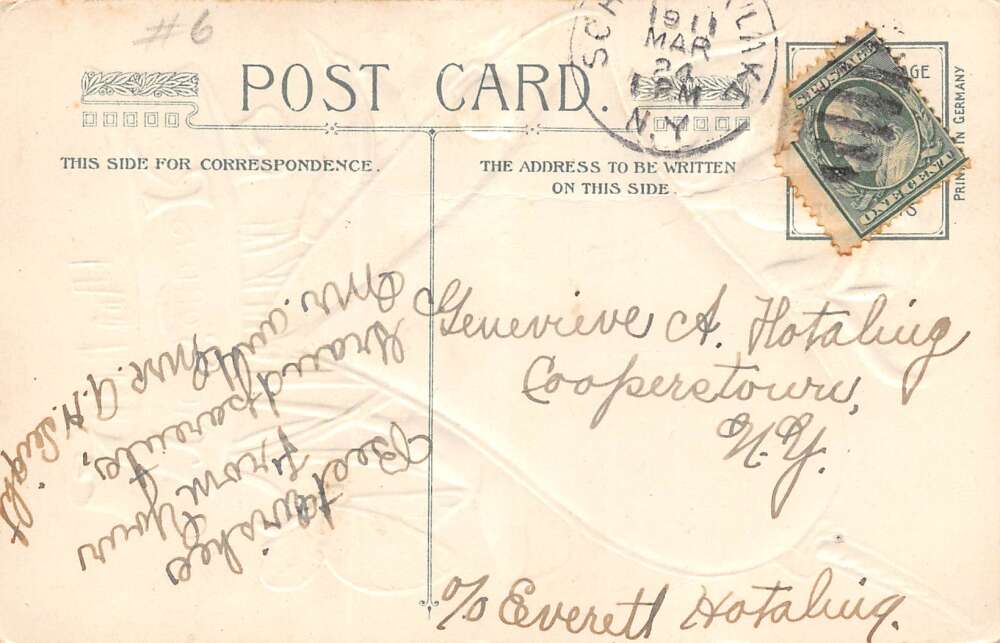 #6
POST CARD.
1911
MAR
24
PM
N.Y.
THIS SIDE FOR CORRESPONDENCE.
THE ADDRESS TO BE WRITTEN
ON THIS SIDE.
ONE CENT
PRINTED IN GERMANY
Genevieve A. Hotaling
Cooperstown,
N.Y.
c/o Everett Hotaling.
Best Wishes
From Your
Grandparents,
Mr. and Mrs. A.H.